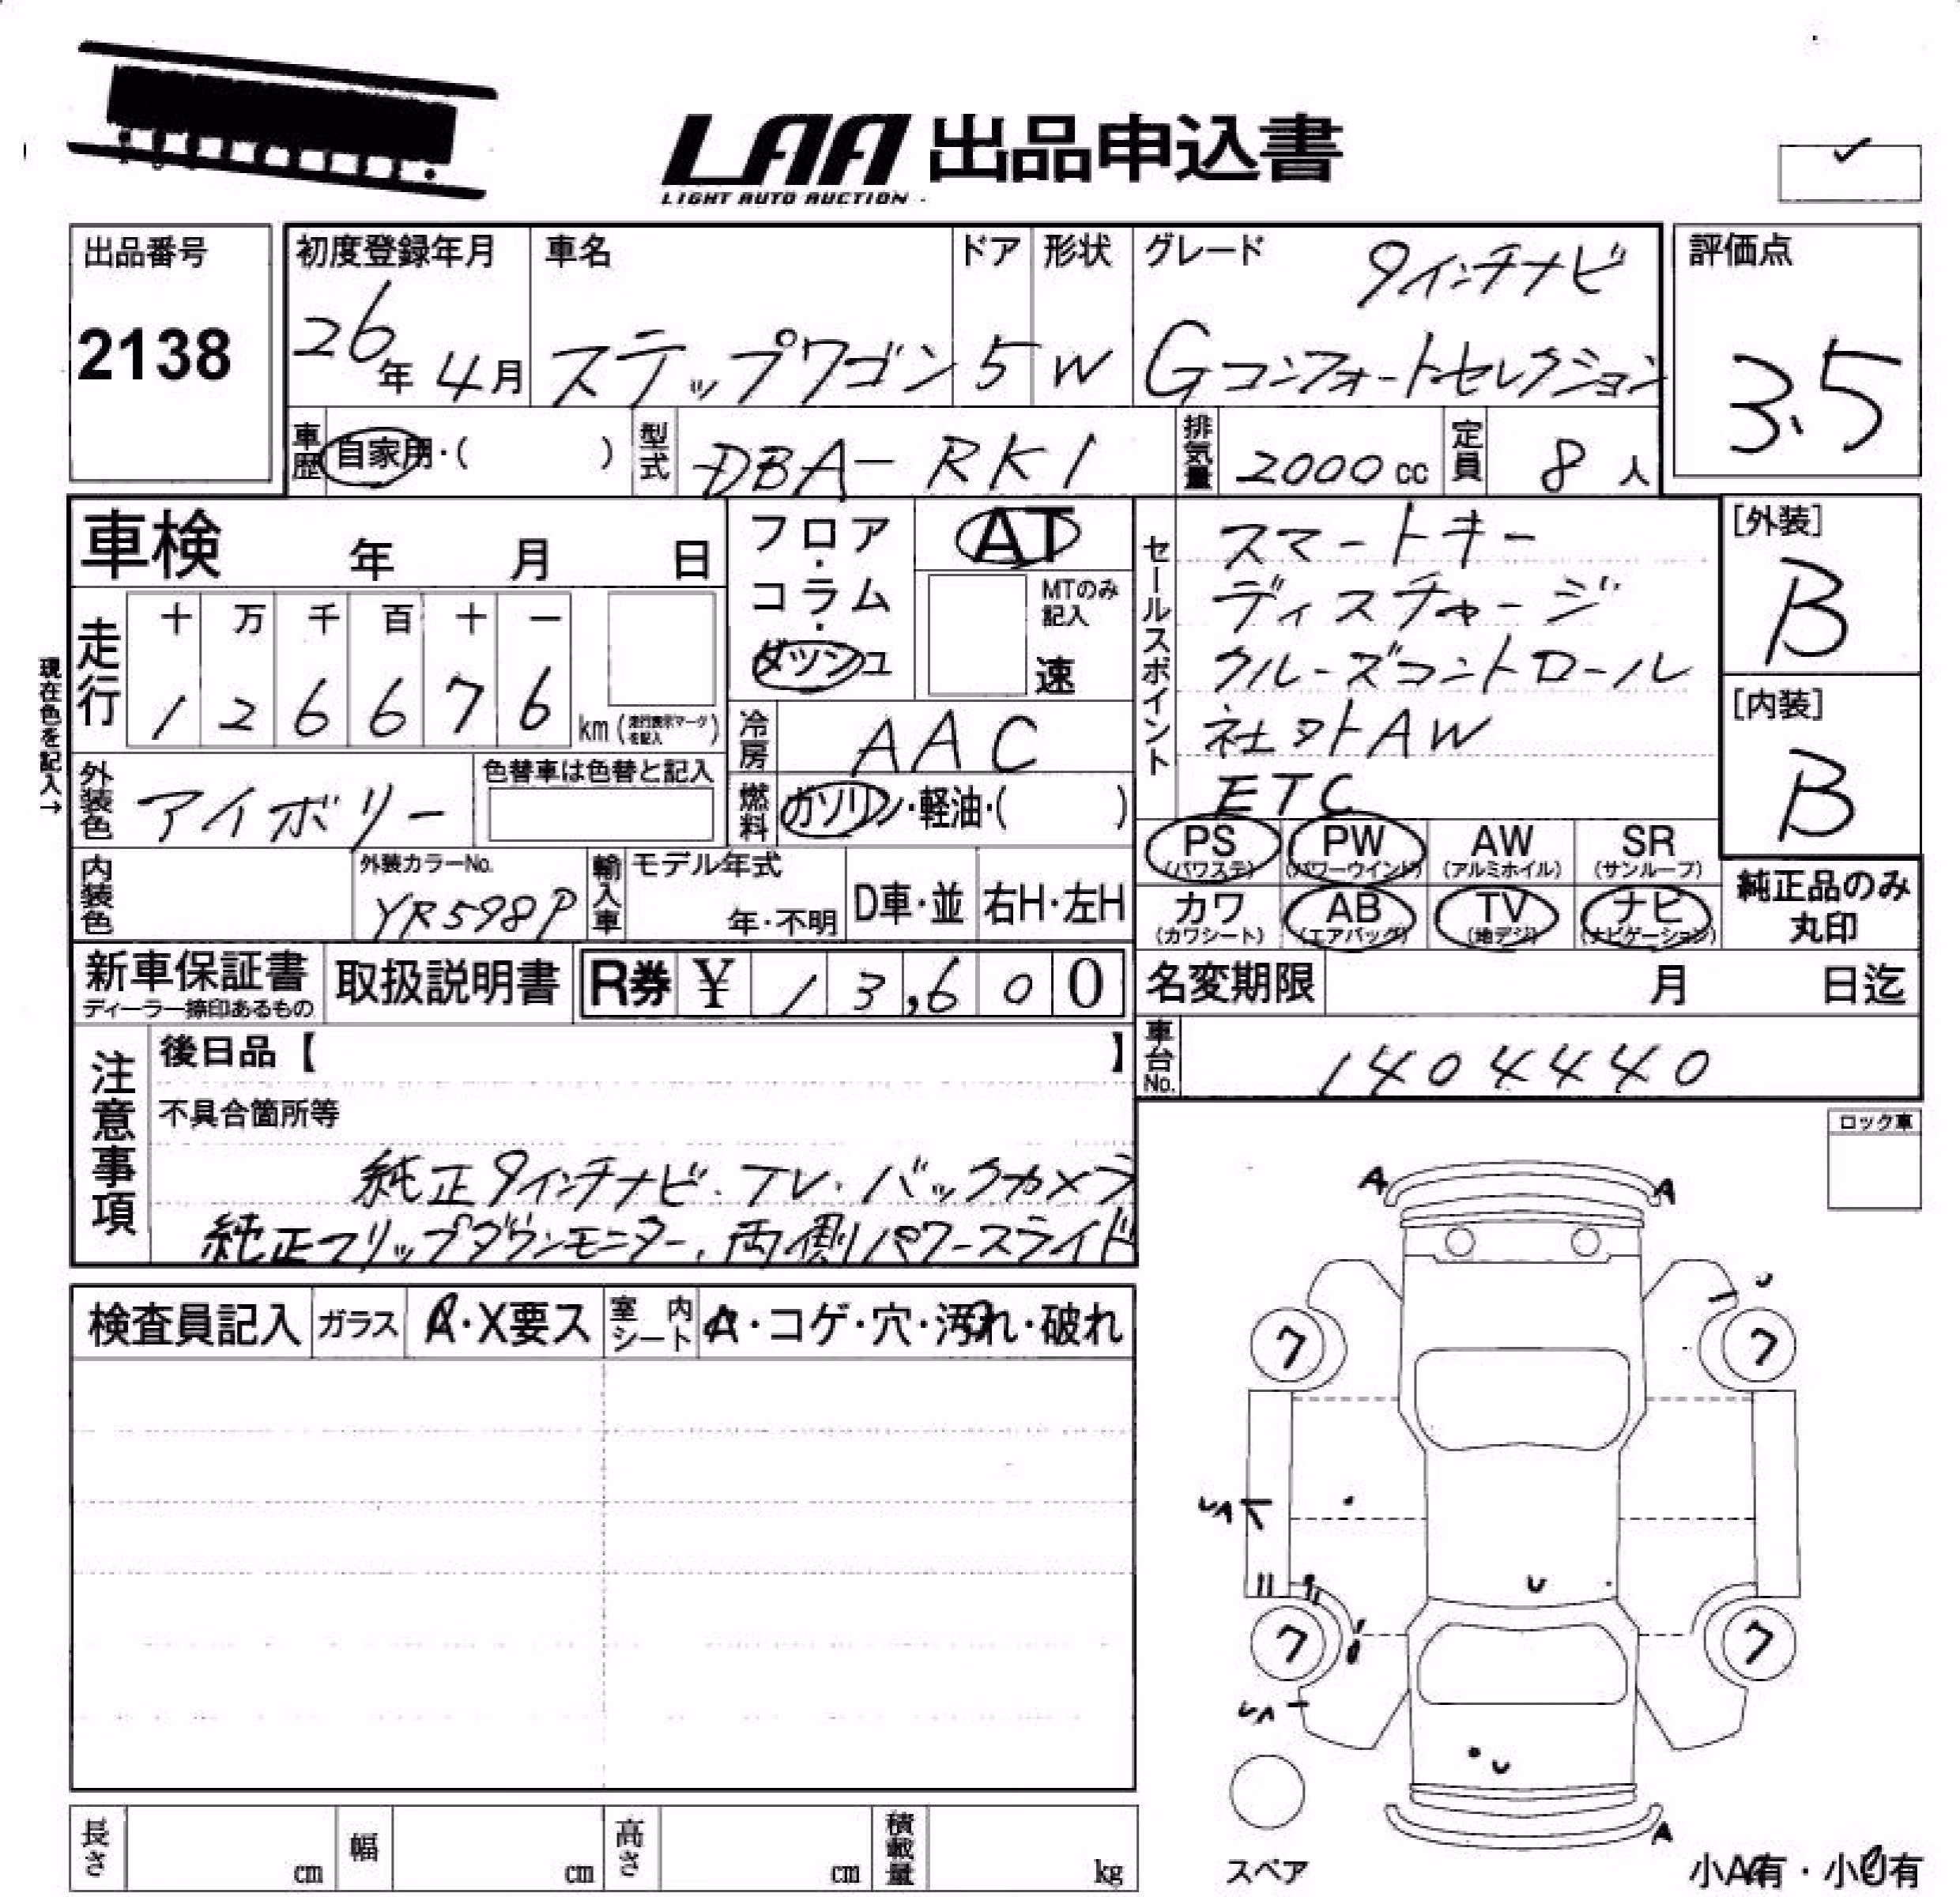 LAA 出品申込書
LIGHT AUTO AUCTION
出品番号
2138
初度登録年月
26年4月
車名
ステップワゴン
ドア
5
形状
W
グレード
9インチナビ
Gコンフォートセレクション
評価点
3.5
車歴 自家用・( )
型式 DBA-RK1
排気量 2000cc
定員 8人
車検 年 月 日
フロア・コラム・ダッシュ
AT
MTのみ記入
速
現在色を記入→
走行
十 万 千 百 十 一
1 2 6 6 7 6
km(走行表示マークを記入)
冷房 AAC
外装色 アイボリー
色替車は色替と記入
燃料 ガソリン・軽油・( )
内装色
外装カラーNo.
YR598P
輸入車
モデル年式
年・不明
D車・並
右H・左H
セールスポイント
スマートキー
ディスチャージ
クルーズコントロール
社外AW
ETC
[外装]
B
[内装]
B
PS (パワステ)
PW (パワーウインド)
AW (アルミホイル)
SR (サンルーフ)
カワ (カワシート)
AB (エアバッグ)
TV (地デジ)
ナビ (ナビゲーション)
純正品のみ丸印
新車保証書
ディーラー捺印あるもの
取扱説明書
R券 ¥ 13,600
名変期限 月 日迄
車台No. 1404440
注意事項
後日品【 】
不具合箇所等
純正9インチナビ・TV・バックカメラ
純正フリップダウンモニター、両側パワースライド
ロック車
検査員記入
ガラス
・X要ス
室内シート
A・コゲ・穴・汚れ・破れ
A A
7 7
7 7
A
スペア
小A有・小U有
長さ cm
幅 cm
高さ cm
積載量 kg